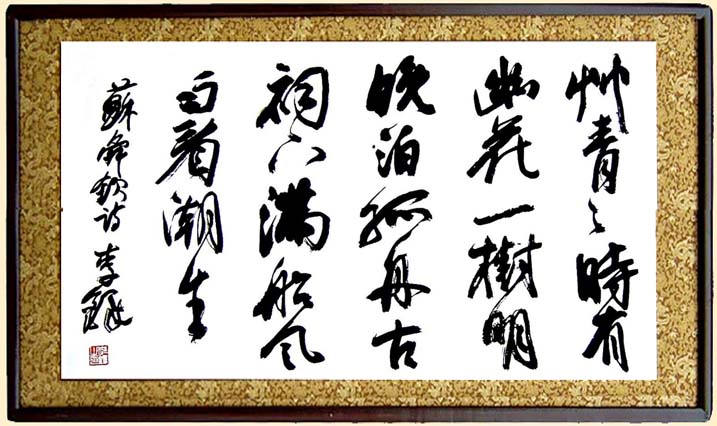 艸青々時有
幽花一樹明
晚泊孤舟古
祠下滿船风
雨看潮生
蘇舜欽詩 李鐸